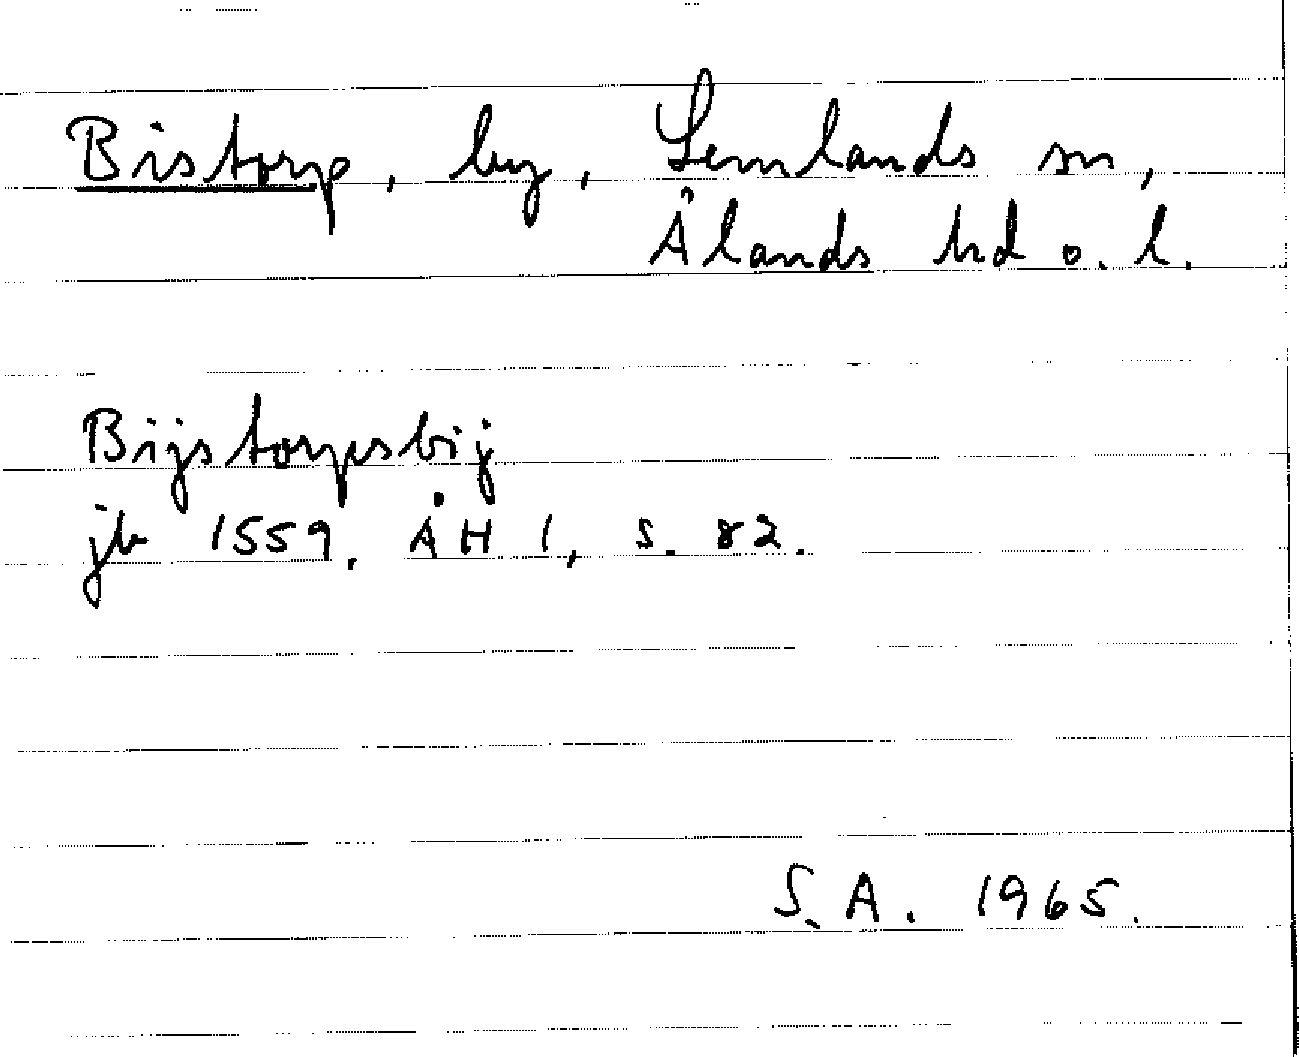 Bistorp, by, Lemlands sn,
Ålands hd o. l.
Bijstorpsbij
jb 1559. ÅH 1, s. 82.
S.A. 1965.